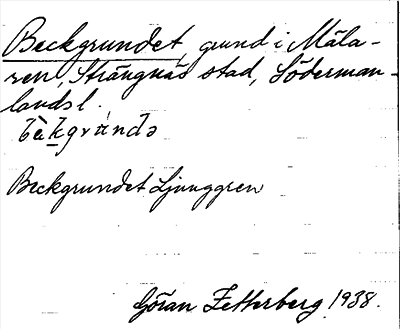 Beckgrundet, grund i Mäla-
ren, Strängnäs stad, Söderman-
lands l.
Beckgrundet Ljunggren
Göran Zetterberg 1938.